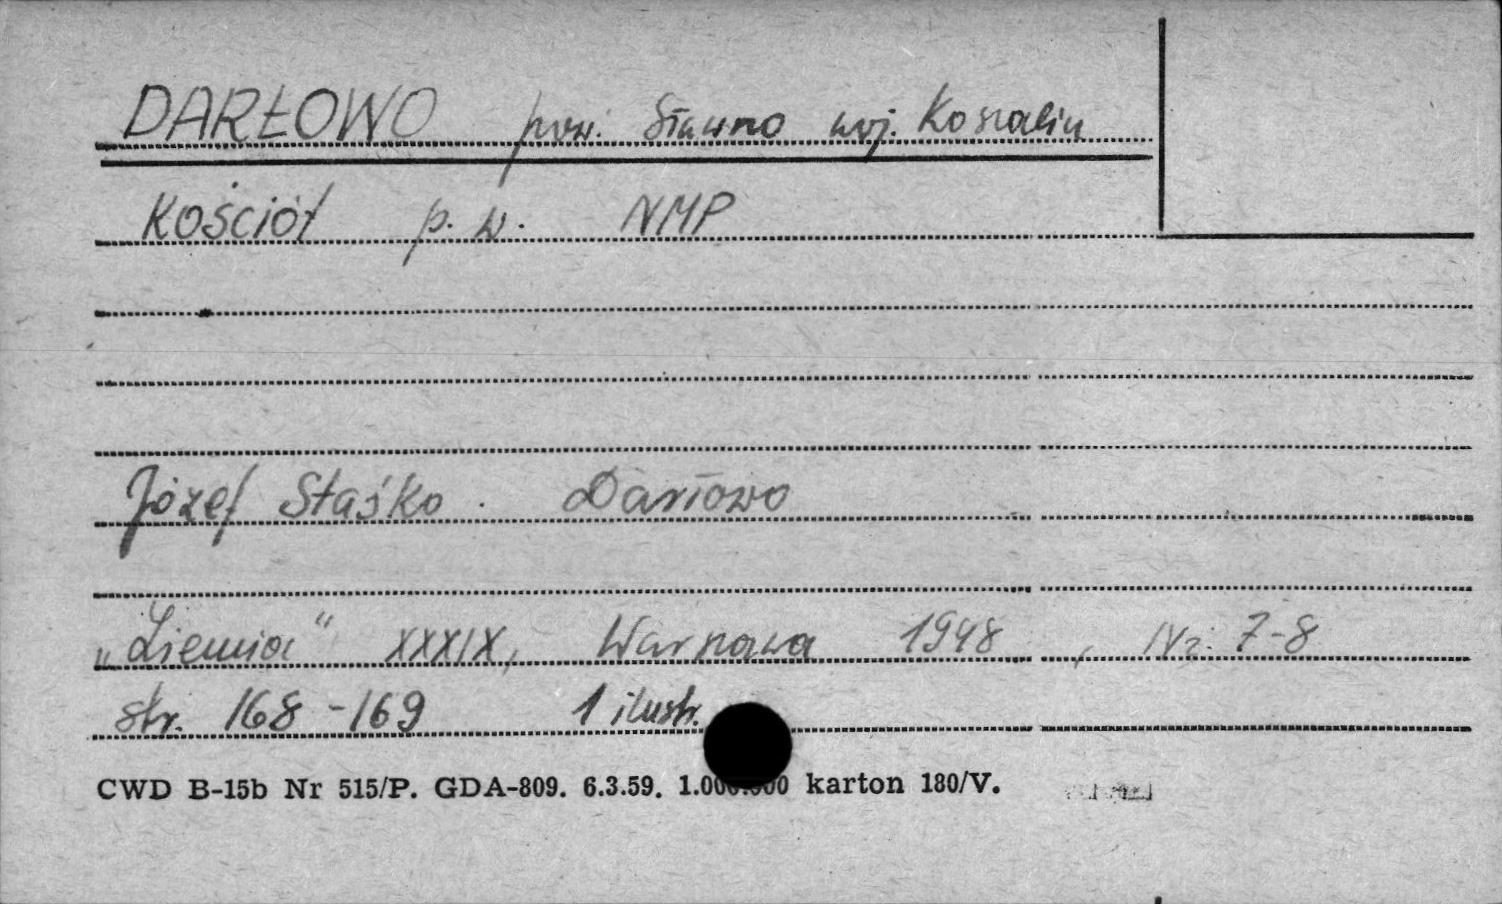 DARŁOWO pow. Sławno woj. Koszalin
Kościół p.w. NMP
Józef Staśko. Darłowo
„Ziemia" XXXIX, Warszawa 1948, Nr. 7-8
str. 168-169 1 ilustr.
CWD B-15b Nr 515/P. GDA-809. 6.3.59. 1.000.000 karton 180/V.